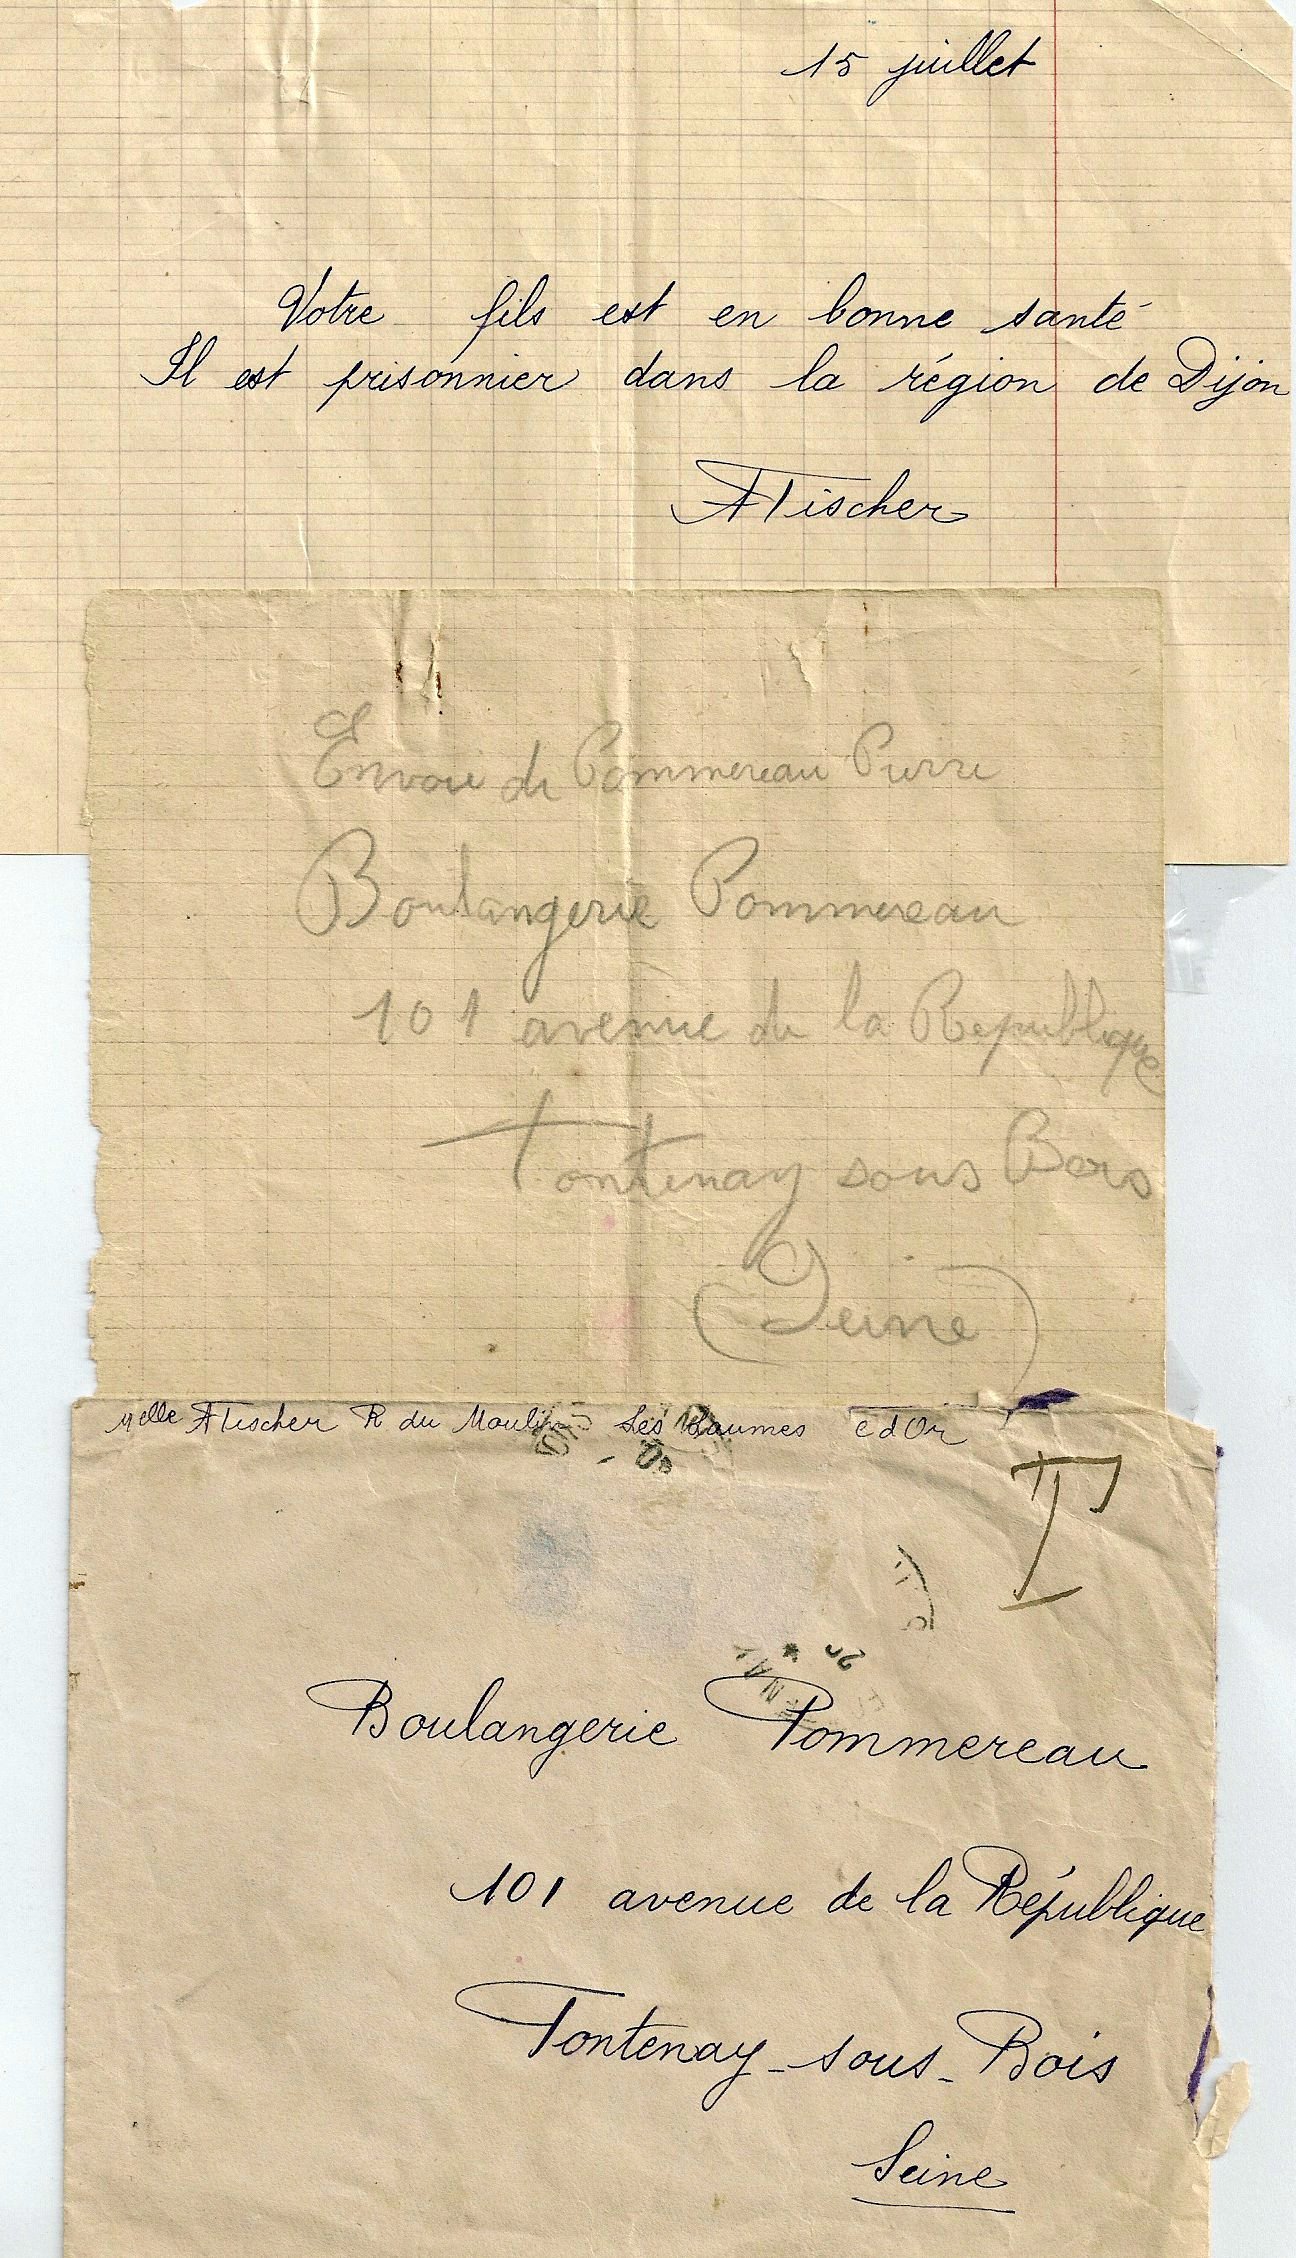 15 juillet
Votre fils est en bonne santé
Il est prisonnier dans la région de Dijon
A Fischer
Envoi de Pommereau Pierre
Boulangerie Pommereau
101 avenue de la Republique
Fontenay sous Bois
(Seine)
Melle A Fischer R du Moulin Les Laumes C d'Or
T
Boulangerie Pommereau
101 avenue de la République
Fontenay-sous-Bois
Seine